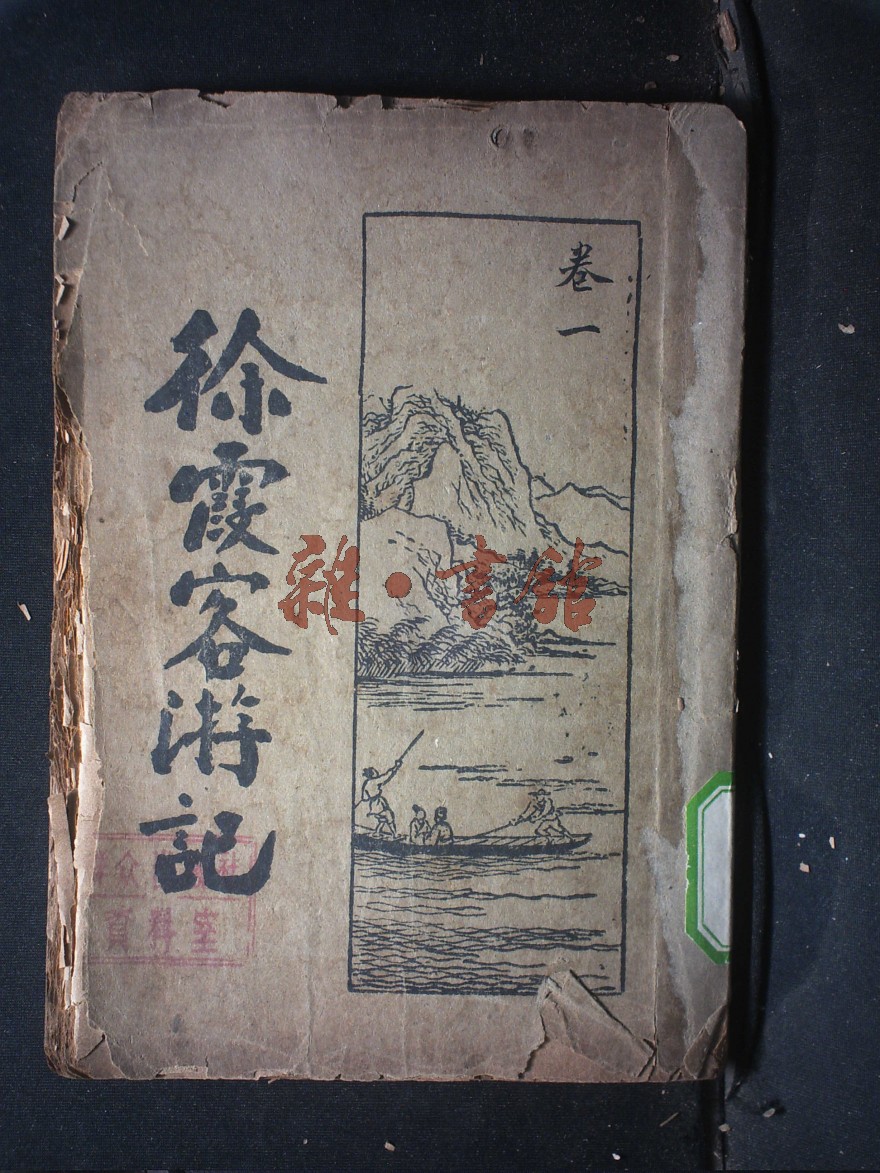 卷一
徐霞客游記
雜·書館
資料室